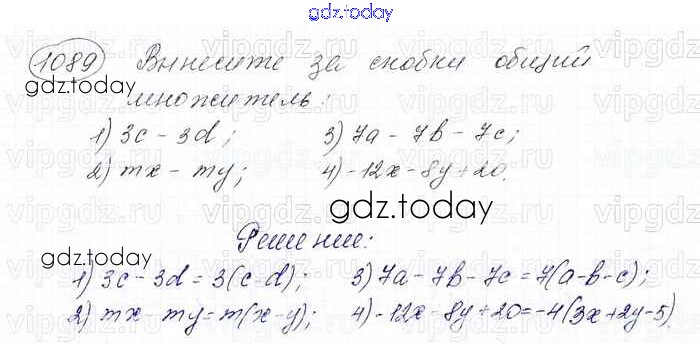 gdz.today
1089 Вынесите за скобки общий
gdz.today
множитель:
1) 3c - 3d; 3) 7a - 7b - 7c;
2) mx - my; 4) -12x - 8y + 20.
gdz.today
Решение:
gdz.today
1) 3c - 3d = 3(c-d); 3) 7a - 7b - 7c = 7(a-b-c);
2) mx - my = m(x-y); 4) -12x - 8y + 20 = -4(3x+2y-5)